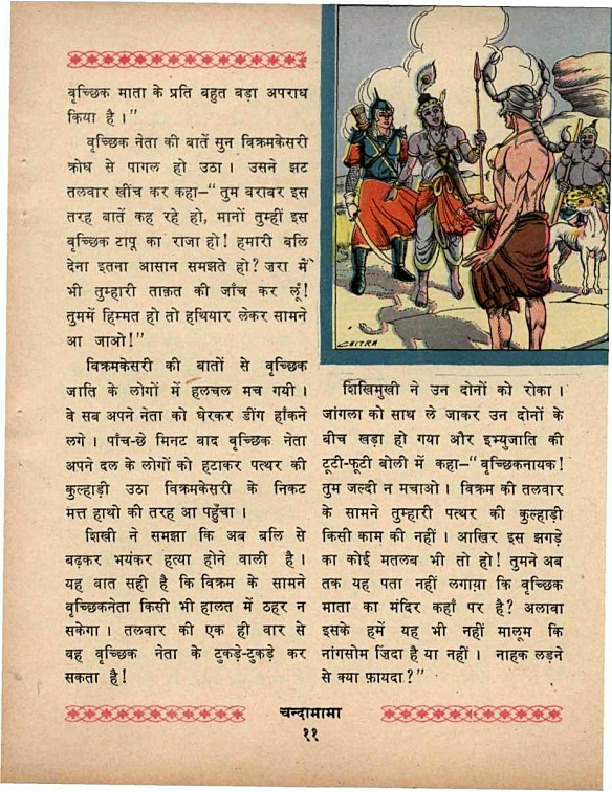 वृच्छिक माता के प्रति बहुत बड़ा अपराध
किया है।”
वृच्छिक नेता की बातें सुन विक्रमकेसरी
क्रोध से पागल हो उठा। उसने झट
तलवार खींच कर कहा–“तुम बराबर इस
तरह बातें कह रहे हो, मानों तुम्हीं इस
वृच्छिक टापू का राजा हो! हमारी बलि
देना इतना आसान समझते हो? ज़रा में
भी तुम्हारी ताक़त की जाँच कर लूं!
तुममें हिम्मत हो तो हथियार लेकर सामने
आ जाओ!”
विक्रमकेसरी की बातों से वृच्छिक
जाति के लोगों में हलचल मच गयी।
वे सब अपने नेता को घेरकर डींग हाँकने
लगे। पाँच-छे मिनट बाद वृच्छिक नेता
अपने दल के लोगों को हटाकर पत्थर की
कुल्हाड़ी उठा विक्रमकेसरी के निकट
मत्त हाथी की तरह आ पहुँचा।
शिखी ने समझा कि अब बलि से
बढ़कर भयंकर हत्या होने वाली है।
यह बात सही है कि विक्रम के सामने
वृच्छिकनेता किसी भी हालत में ठहर न
सकेगा। तलवार की एक ही वार से
वह वृच्छिक नेता के टुकड़े-टुकड़े कर
सकता है!
CHITRA
शिखिमुखी ने उन दोनों को रोका।
जांगला को साथ ले जाकर उन दोनों के
बीच खड़ा हो गया और इम्युजाति की
टूटी-फूटी बोली में कहा–“वृच्छिकनायक!
तुम जल्दी न मचाओ। विक्रम की तलवार
के सामने तुम्हारी पत्थर की कुल्हाड़ी
किसी काम की नहीं। आखिर इस झगड़े
का कोई मतलब भी तो हो! तुमने अब
तक यह पता नहीं लगाया कि वृच्छिक
माता का मंदिर कहाँ पर है? अलावा
इसके हमें यह भी नहीं मालूम कि
नांगसोम ज़िंदा है या नहीं। नाहक लड़ने
से क्या फ़ायदा?”
चन्दामामा
११